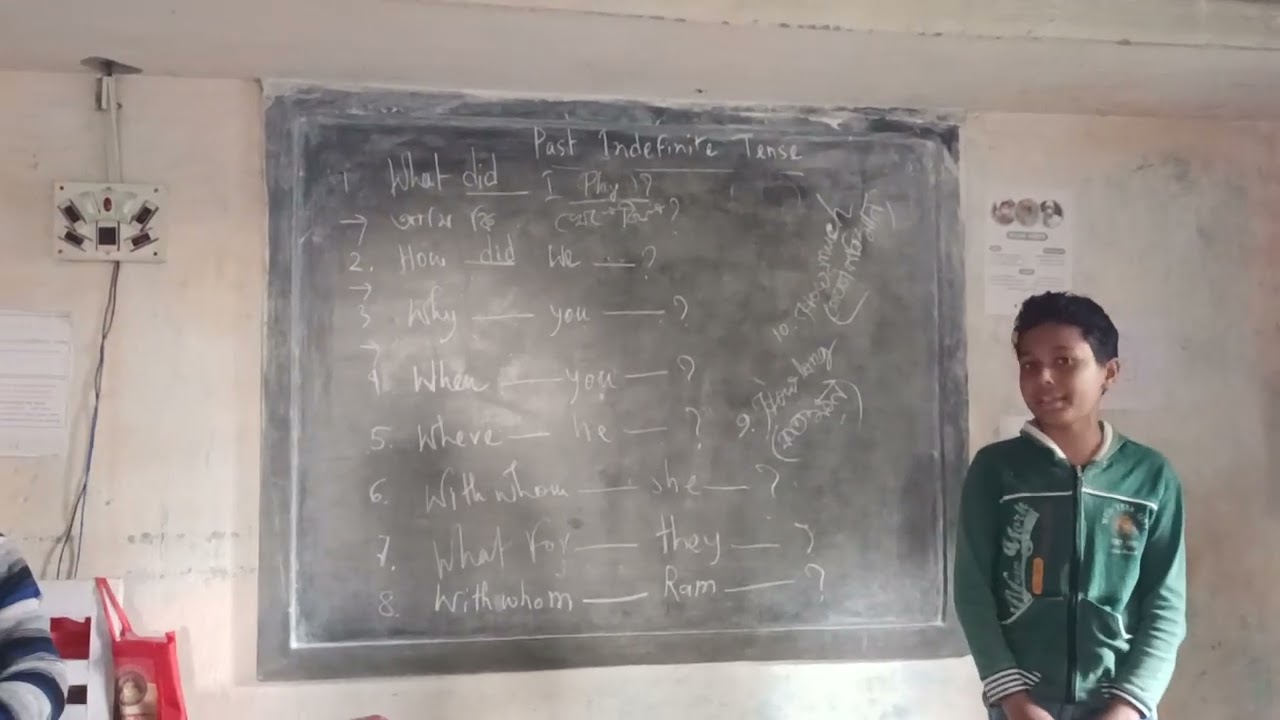 Past Indefinite Tense
1 What did I Play ?
→ কি ?
2. How did We — ?
→
3 Why — you — ?
→
4. When — you — ?
5. Where — he — ?
6. With whom — she — ?
7. What For — they — ?
8. With whom — Ram — ?
9. How long
10. How much
New York